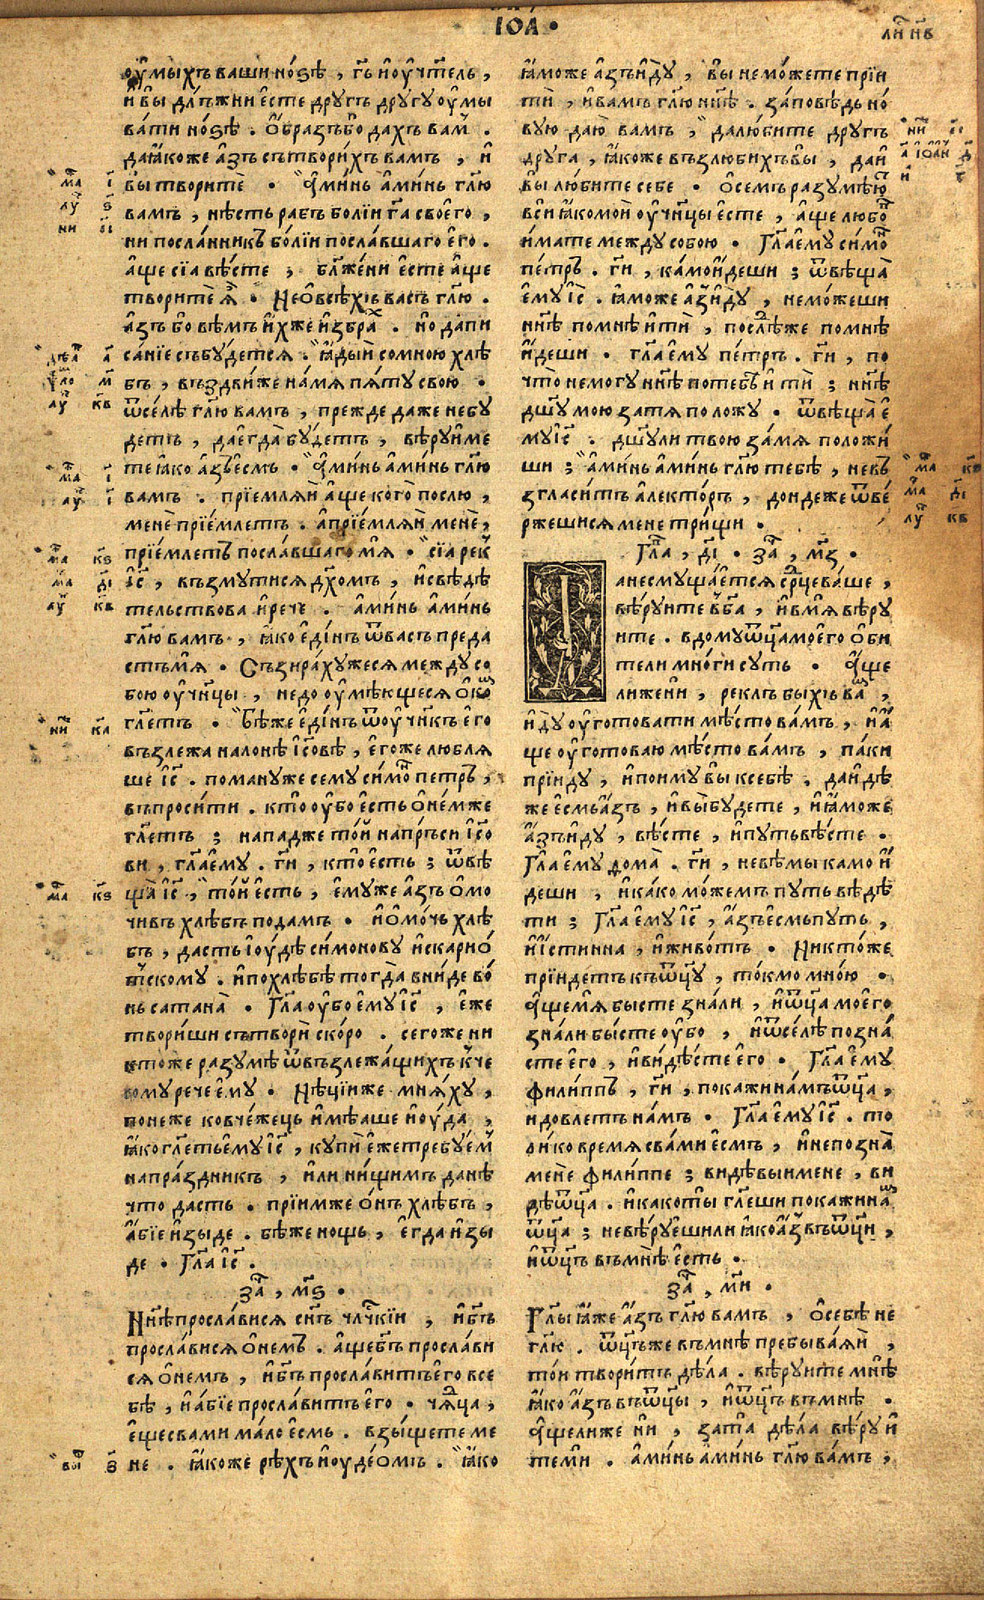 ІѠА ·
оумыхъ ваши нозѣ , гь и оучтель ,
и вы длъжни есте другъ другу оумы
вати нозѣ . Образъ бо дахъ вам .
да ꙗкоже азъ сътворихъ вамъ , и
вы творите · Аминь аминь глю
вамъ , нѣсть рабъ болїи га своего ,
ни посланникъ болїи пославшаго его .
аще сїа вѣсте , блжени есте аще
творите ѧ · Не о всѣхъ васъ глю .
азъ бо вѣмъ ихже избрах . но да пи
санїе събудется . ꙗдый со мною хлѣ
бъ , въздвиже на мя пяту свою .
ѿселѣ глю вамъ , прежде даже не бу
детъ , да егда будетъ , вѣру име
те ꙗко азъ есмъ · Аминь аминь глю
вамъ . прїемляй аще кого послю ,
мене прїемлетъ . а прїемляй мене ,
прїемлетъ пославшаго мя · сїа рек
іс , възмутися дхомъ , и свѣдѣ
тельствова и рече . аминь аминь
глю вамъ , ꙗко единъ ѿ васъ преда
стъ мя · Съзирахужеся между со
бою оучнцы , недооумѣющеся о ко
глетъ · Бѣже единъ ѿ оучнкъ его
възлежа на лонѣ ісовѣ , егоже любля
ше іс . помануже сему симо петръ ,
въпросити . кто оубо есть о немже
глетъ ; нападже той на пръси ісо
ви , гла ему . ги , кто есть ; ѿвѣ
ща іс , той есть , емуже азъ омо
чивъ хлѣбъ подамъ · и омочь хлѣ
бъ , дасть іоудѣ симонову искарио
тскому . и по хлѣбѣ тогда вниде во
нь сатана · Гла оубо ему іс , еже
твориши сътвори скоро . сегоже ни
ктоже разумѣ ѿ възлежащихъ к че
сому рече ему · Нѣцїиже мняху ,
понеже ковчежецъ имѣаше июда ,
ꙗко глеть ему іс , купи еже требуем
на праздникъ , или нищимъ да нѣ
что дасть . прїимже онъ хлѣбъ ,
абїе изыде . бѣже нощь , егда изы
де · Гла іс .
За , мѕ ·
Ннѣ прославися снъ члчкїи , и бгъ
прославися о немъ . аще бгъ прослави
ся о немъ , и бгъ прославитъ его в се
бѣ , и абїе прославитъ его · чяца ,
еще с вами мало есмь . взыщете ме
не . ꙗкоже рѣхъ июдеомъ . ꙗко
ꙗможе азъ иду , вы не можете прїи
ти , и вамъ глю ннѣ . заповѣдь но
вую даю вамъ , да любите другъ
друга , ꙗкоже възлюбихъ вы , да и
вы любите себе · О семъ разумѣю
вси ꙗко мои оучнцы есте , аще любо
имате между собою · Гла ему симо
петръ . ги , камо идеши ; ѿвѣща
ему іс . ꙗможе аз иду , не можеши
ннѣ по мнѣ ити , послѣже по мнѣ
идеши · гла ему петръ . ги , по
что не могу ннѣ по тебѣ ити ; ннѣ
дшу мою за тя положу . ѿвѣща е
му іс . дшу ли твою за мя положи
ши ; аминь аминь глю тебѣ , не въ
згласитъ алекторъ , дондеже ѿве
ржешися мене трищи .
Гла , ді · За , мз ·
Да не смущается срце ваше ,
вѣруите в ба , и в мя вѣру
ите . в дому оца моего оби
тели многи суть · Аще
ли же ни , реклъ быхъ ва ,
иду оуготовати мѣсто вамъ , и а
ще оуготоваю мѣсто вамъ , паки
прїиду , и поиму вы к себѣ . да идѣ
же есмь азъ , и вы будете , и ꙗможе
азъ иду , вѣсте , и путь вѣсте .
Гла ему ѳома . ги , не вѣмы камо и
деши , и како можемъ путь вѣдѣ
ти ; Гла ему іс , азъ есмь путь ,
и истинна , и животъ · Никтоже
прїидетъ къ оцу , токмо мною .
Аще мя бысте знали , и оца моего
знали бысте оубо , и ѿселѣ позна
сте его , и видѣсте его · Гла ему
филиппъ , ги , покажи намъ оца ,
и довлетъ намъ · Гла ему іс . то
лико время с вами есмъ , и не позна
мене филиппе ; видѣвыи мене , ви
дѣ оца . и како ты глеши покажи на
оца ; не вѣруеши ли ꙗко аз въ оци ,
и оцъ въ мнѣ есть ·
За , ми ·
Глы ꙗже азъ глю вамъ , о себѣ не
глю . оцъже въ мнѣ пребываяи ,
той творитъ дѣла . вѣруите мнѣ
ꙗко азъ въ оцы , и оцъ въ мнѣ .
Аще ли же ни , за та дѣла вѣруи
те ми . аминь аминь глю вамъ ,